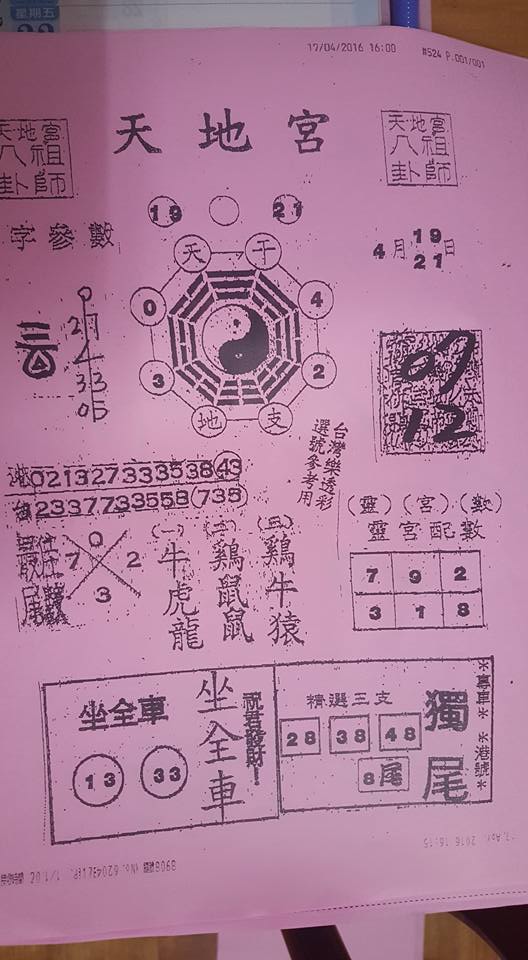 星期五
17/04/2016 16:00 #524 P.001/001
天地宮
八祖
卦師
天地宮
天地宮
八祖
卦師
19 21
字參數
4月19日
21
天 干
0 4
3 2
地 支
0
27
33
05
07
12
台灣樂透彩
選號參考用
港02132733353843
2337733558(735
(靈)(宮)(數)
靈宮配數
7 0 2
3
(一) (二) (三)
牛 鷄 鷄
虎 鼠 牛
龍 鼠 猿
7 9 2
3 1 8
坐全車
13 33
坐全車
祝君發財!
精選三支
28 38 48
8尾
獨尾
*專車**港號*
Apr. 2016 16:15